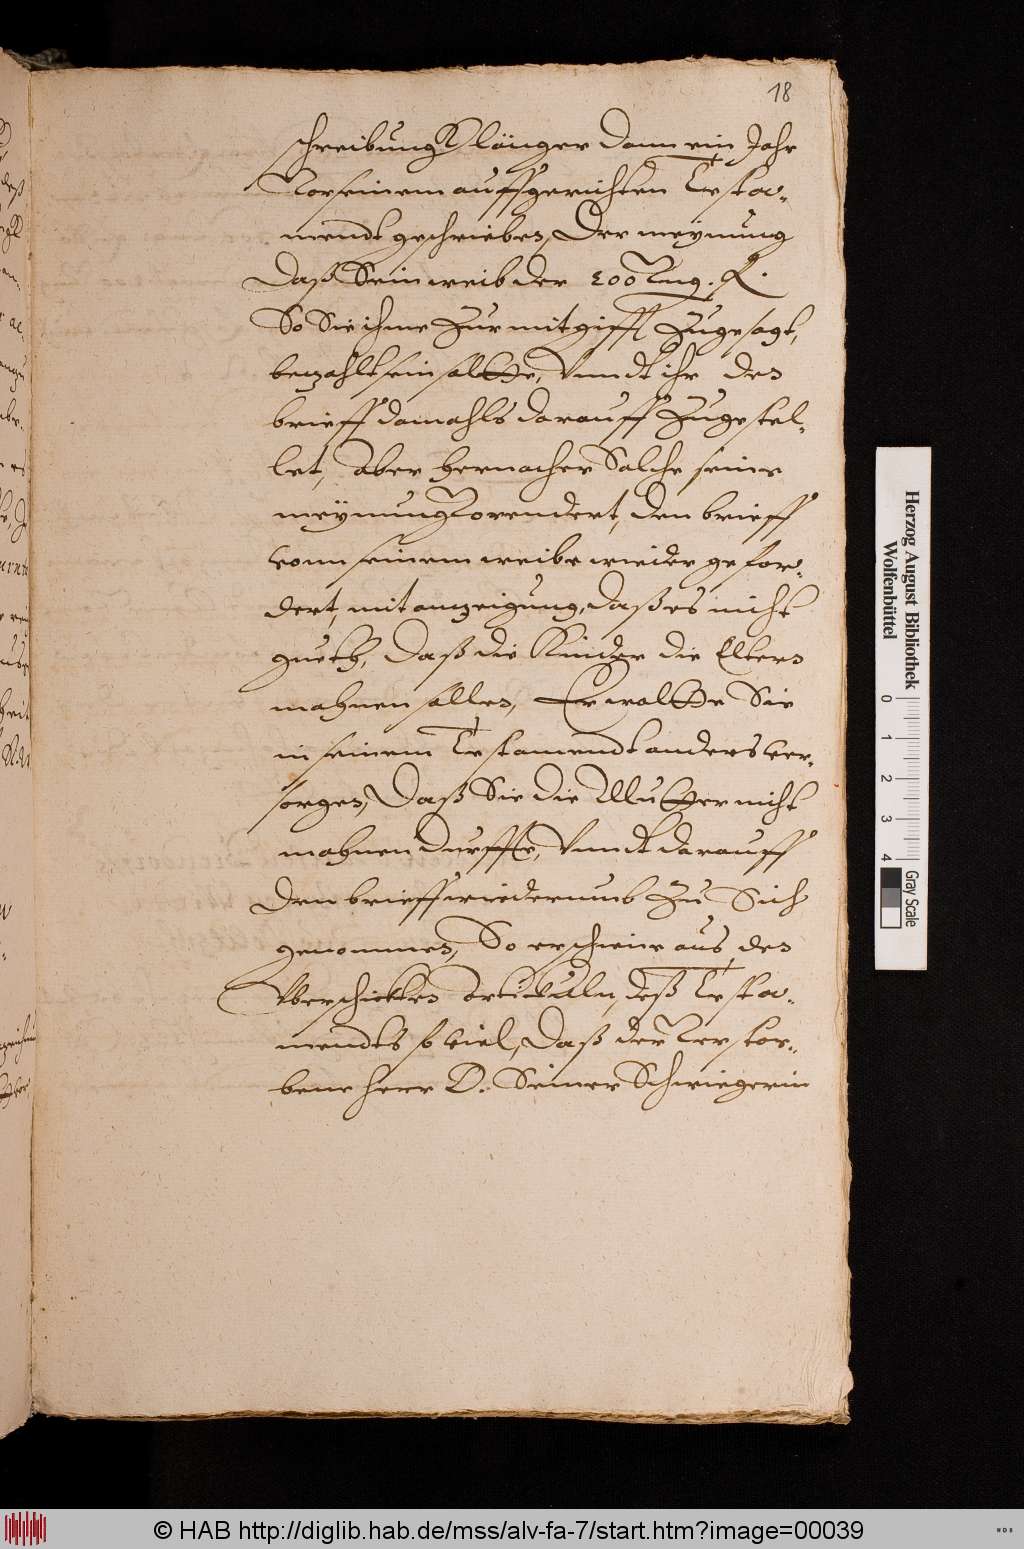 18
schreibung R länger dann ein Jahr
Vor seinem auffgerichten Testa-
mendt geschrieben, Der meynung
Daß Sein weib der 200 Vng. R.
So Sie ihme Zur mitgifft Zugesagt,
bezahlt sein solltte, Vnndt ihr den
brieff damahls darauff Zugestel-
let, aber hernacher Solche seine
meynung Verendert, den brieff
vonn seinem weibe wieder gefor-
dert, mit anzeigung, daß es nicht
gueth, Daß die Kinder die Eltern
mahnen sollen, Er woltte Sie
in seinem Testamendt anders ver-
sorgen, Daß Sie die Mutter nicht
mahnen durffte, Vnndt darauff
den brieff wiederumb Zu Sich
genommen, So erscheine aus den
Vberschickten Articuln, deß Testa-
mendts so viel, Daß der Verstor-
bene Herr D. Seiner Schwiegerin
Herzog August Bibliothek
Wolfenbüttel
0 1 2 3 4
Gray Scale
© HAB http://diglib.hab.de/mss/alv-fa-7/start.htm?image=00039